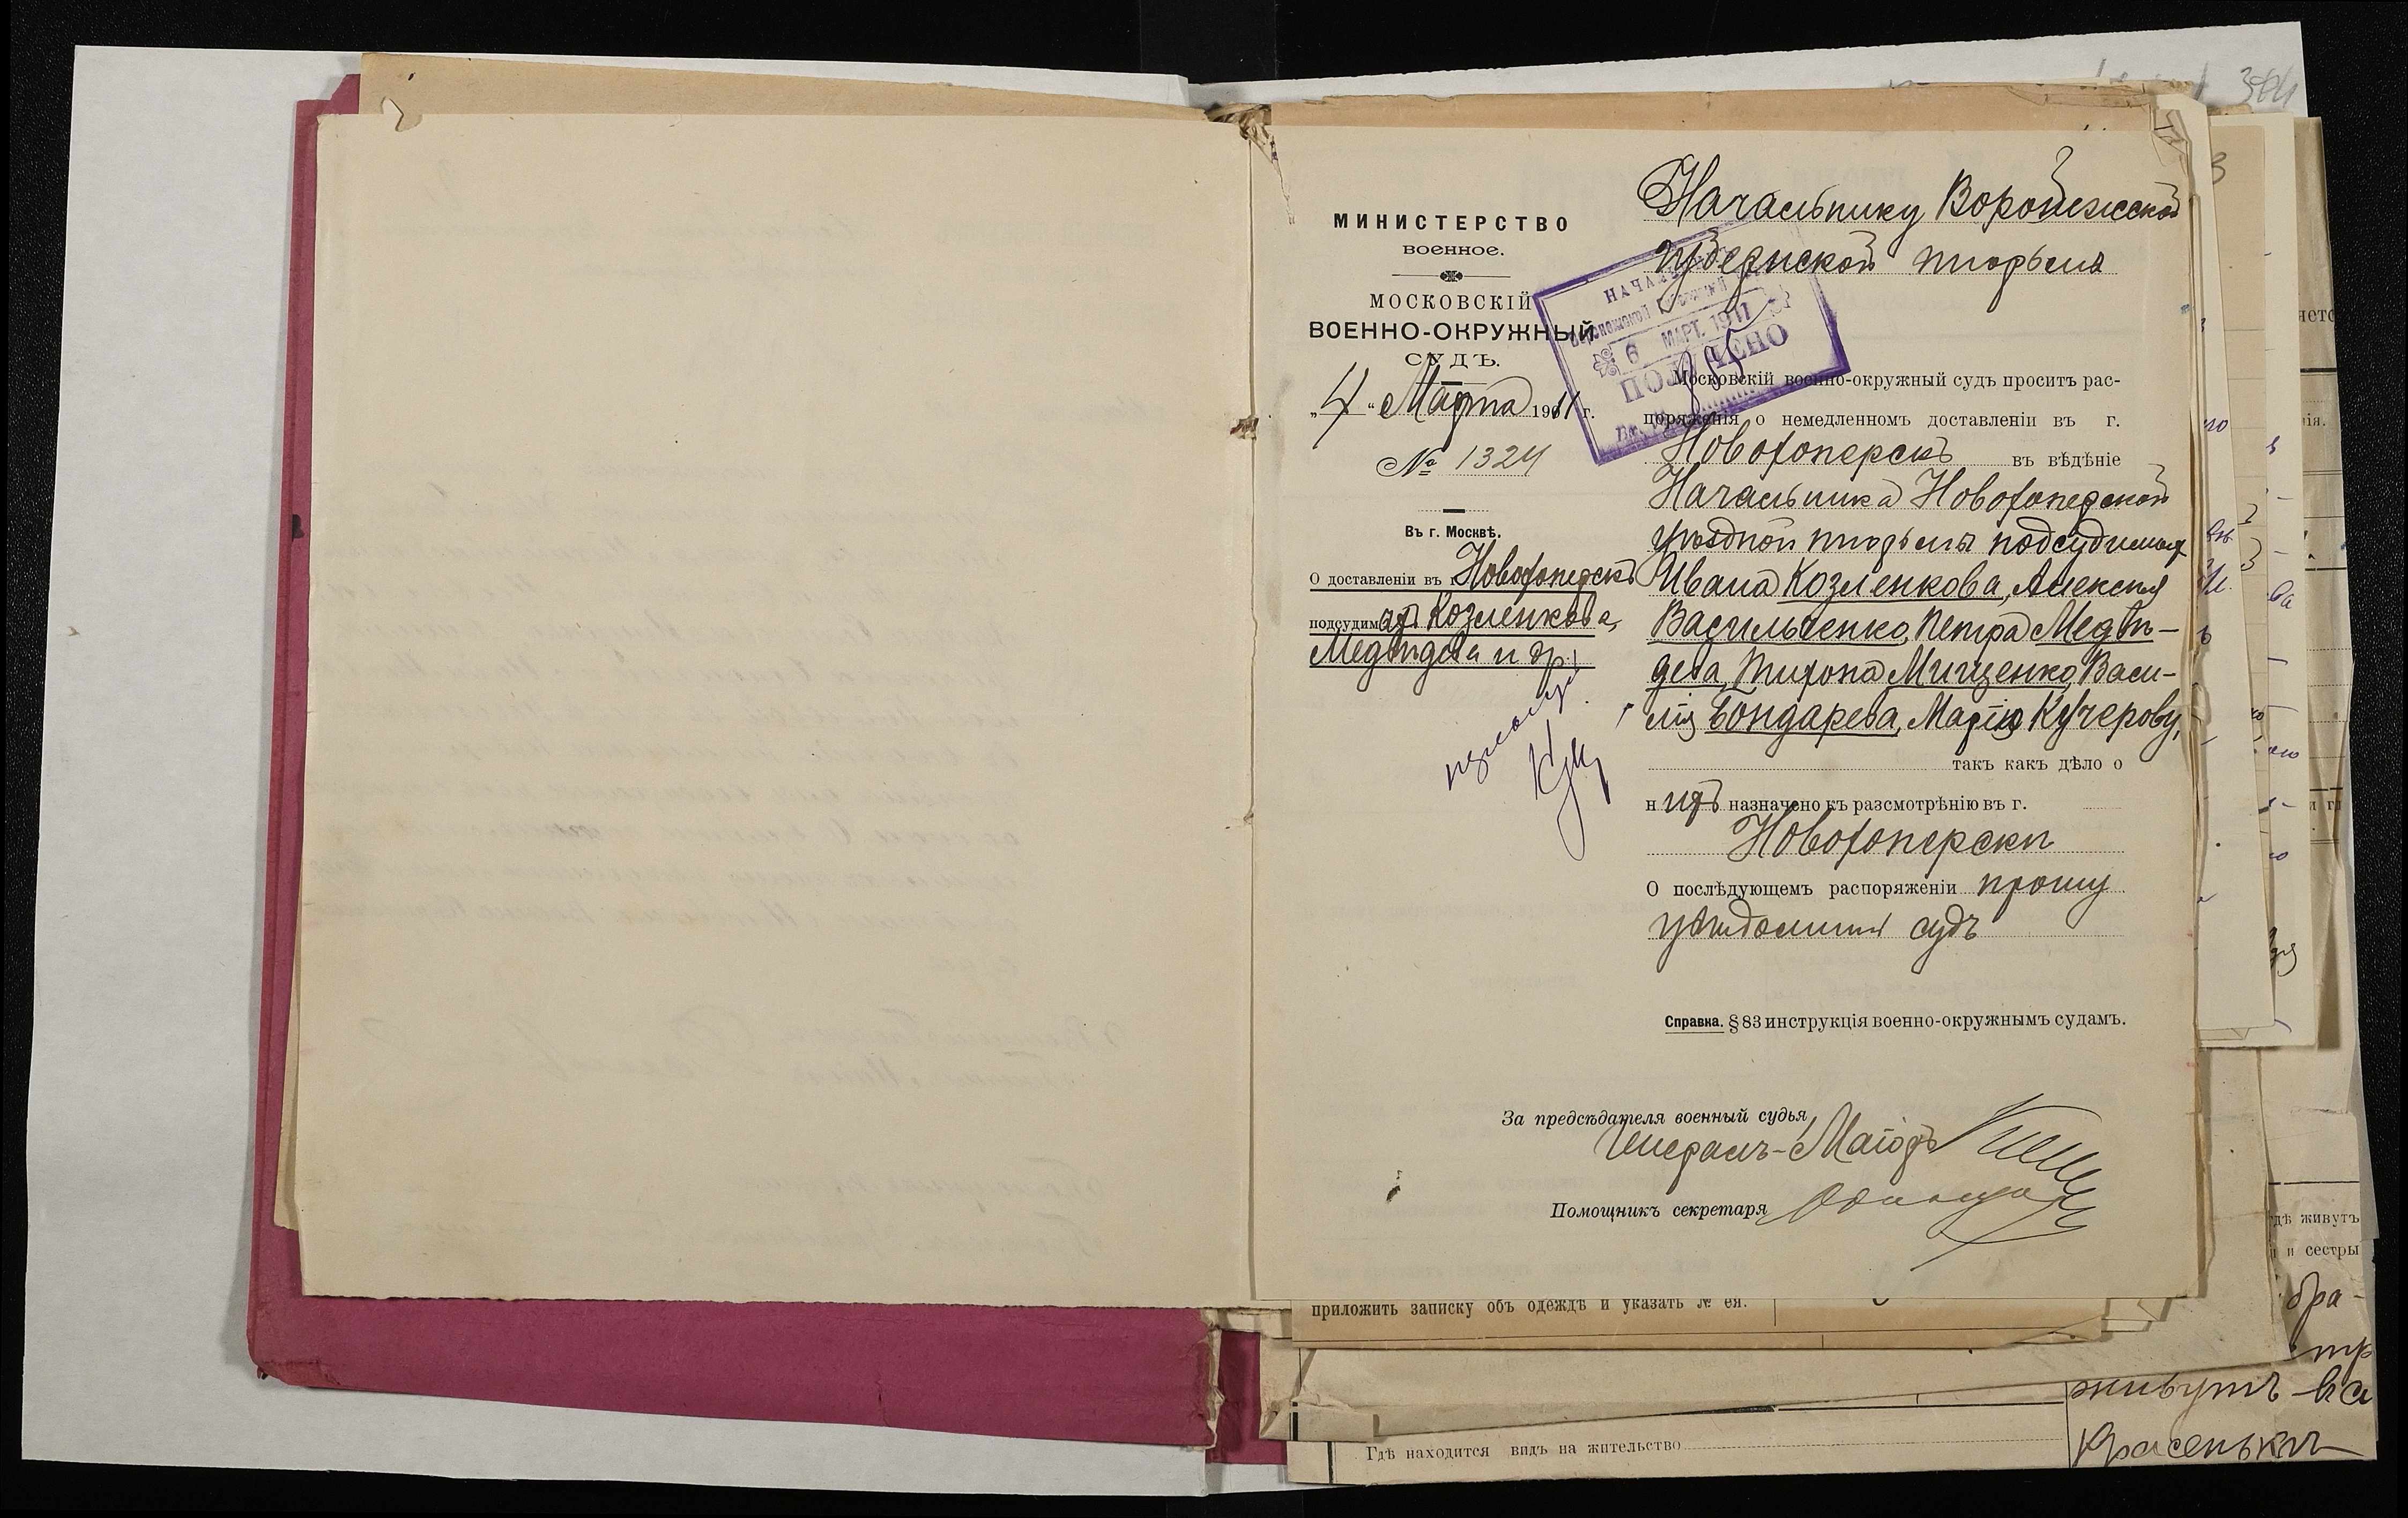 МИНИСТЕРСТВО
ВОЕННОЕ.
МОСКОВСКІЙ
ВОЕННО-ОКРУЖНЫЙ
СУДЪ.
„4“ Марта 1911 г.
№ 1324
Въ г. Москвѣ.
О доставленіи въ г. Новохоперскъ
подсудимыхъ Козленкова,
Медвѣдева и др.
Начальнику Воронежской
Губернской тюрьмы
НАЧАЛЬ
Воронежской Губернской
6 МАРТ. 1911
ПОЛУЧЕНО
Московскій военно-окружный судъ проситъ рас-
поряженія о немедленномъ доставленіи въ г.
Новохоперскъ въ вѣдѣніе
Начальника Новохоперской
уѣздной тюрьмы подсудимыхъ
Ивана Козленкова, Алексѣя
Васильченко, Петра Медвѣ-
дева, Тихона Мищенко, Васи-
лія Бондарева, Марію Кучерову,
такъ какъ дѣло о
нихъ назначено къ разсмотрѣнію въ г.
Новохоперскѣ
О послѣдующемъ распоряженіи прошу
увѣдомить судъ
Справка. § 83 инструкція военно-окружнымъ судамъ.
За предсѣдателя военный судья,
Генералъ-Маіоръ
Помощникъ секретаря
приложить записку объ одеждѣ и указать № ея.
гдѣ живутъ
и сестры
бра-
живутъ въ с
Красенькѣ
Гдѣ находится видъ на жительство